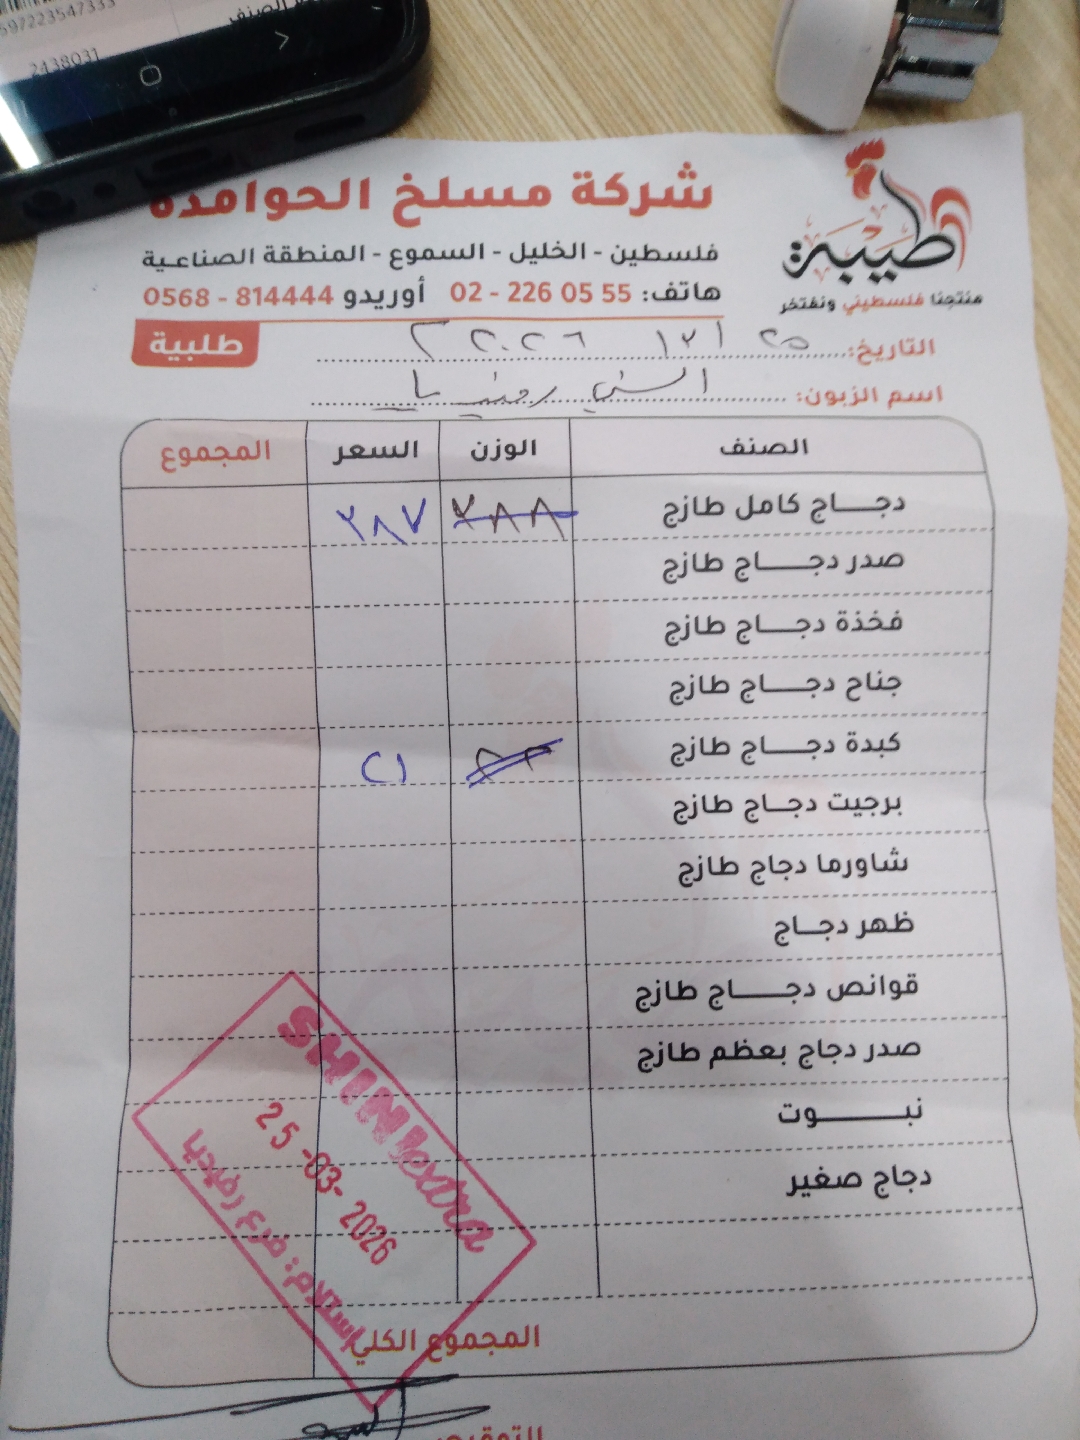 597223547333
الصنف
2438031
طيبة
منتجنا فلسطيني ونفتخر
شركة مسلخ الحوامدة
فلسطين - الخليل - السموع - المنطقة الصناعية
هاتف: 02 - 226 05 55 أوريدو 0568 - 814444
طلبية
التاريخ:
اسم الزبون:
الصنف الوزن السعر المجموع
دجاج كامل طازج ٢٨٨ ٢٨٧
صدر دجاج طازج
فخذة دجاج طازج
جناح دجاج طازج
كبدة دجاج طازج ٢١
برجيت دجاج طازج
شاورما دجاج طازج
ظهر دجاج
قوانص دجاج طازج
صدر دجاج بعظم طازج
نبوت
دجاج صغير
المجموع الكلي
SHINI extra
25-03-2026
إستلام: فرع رفيديا
التوقيع